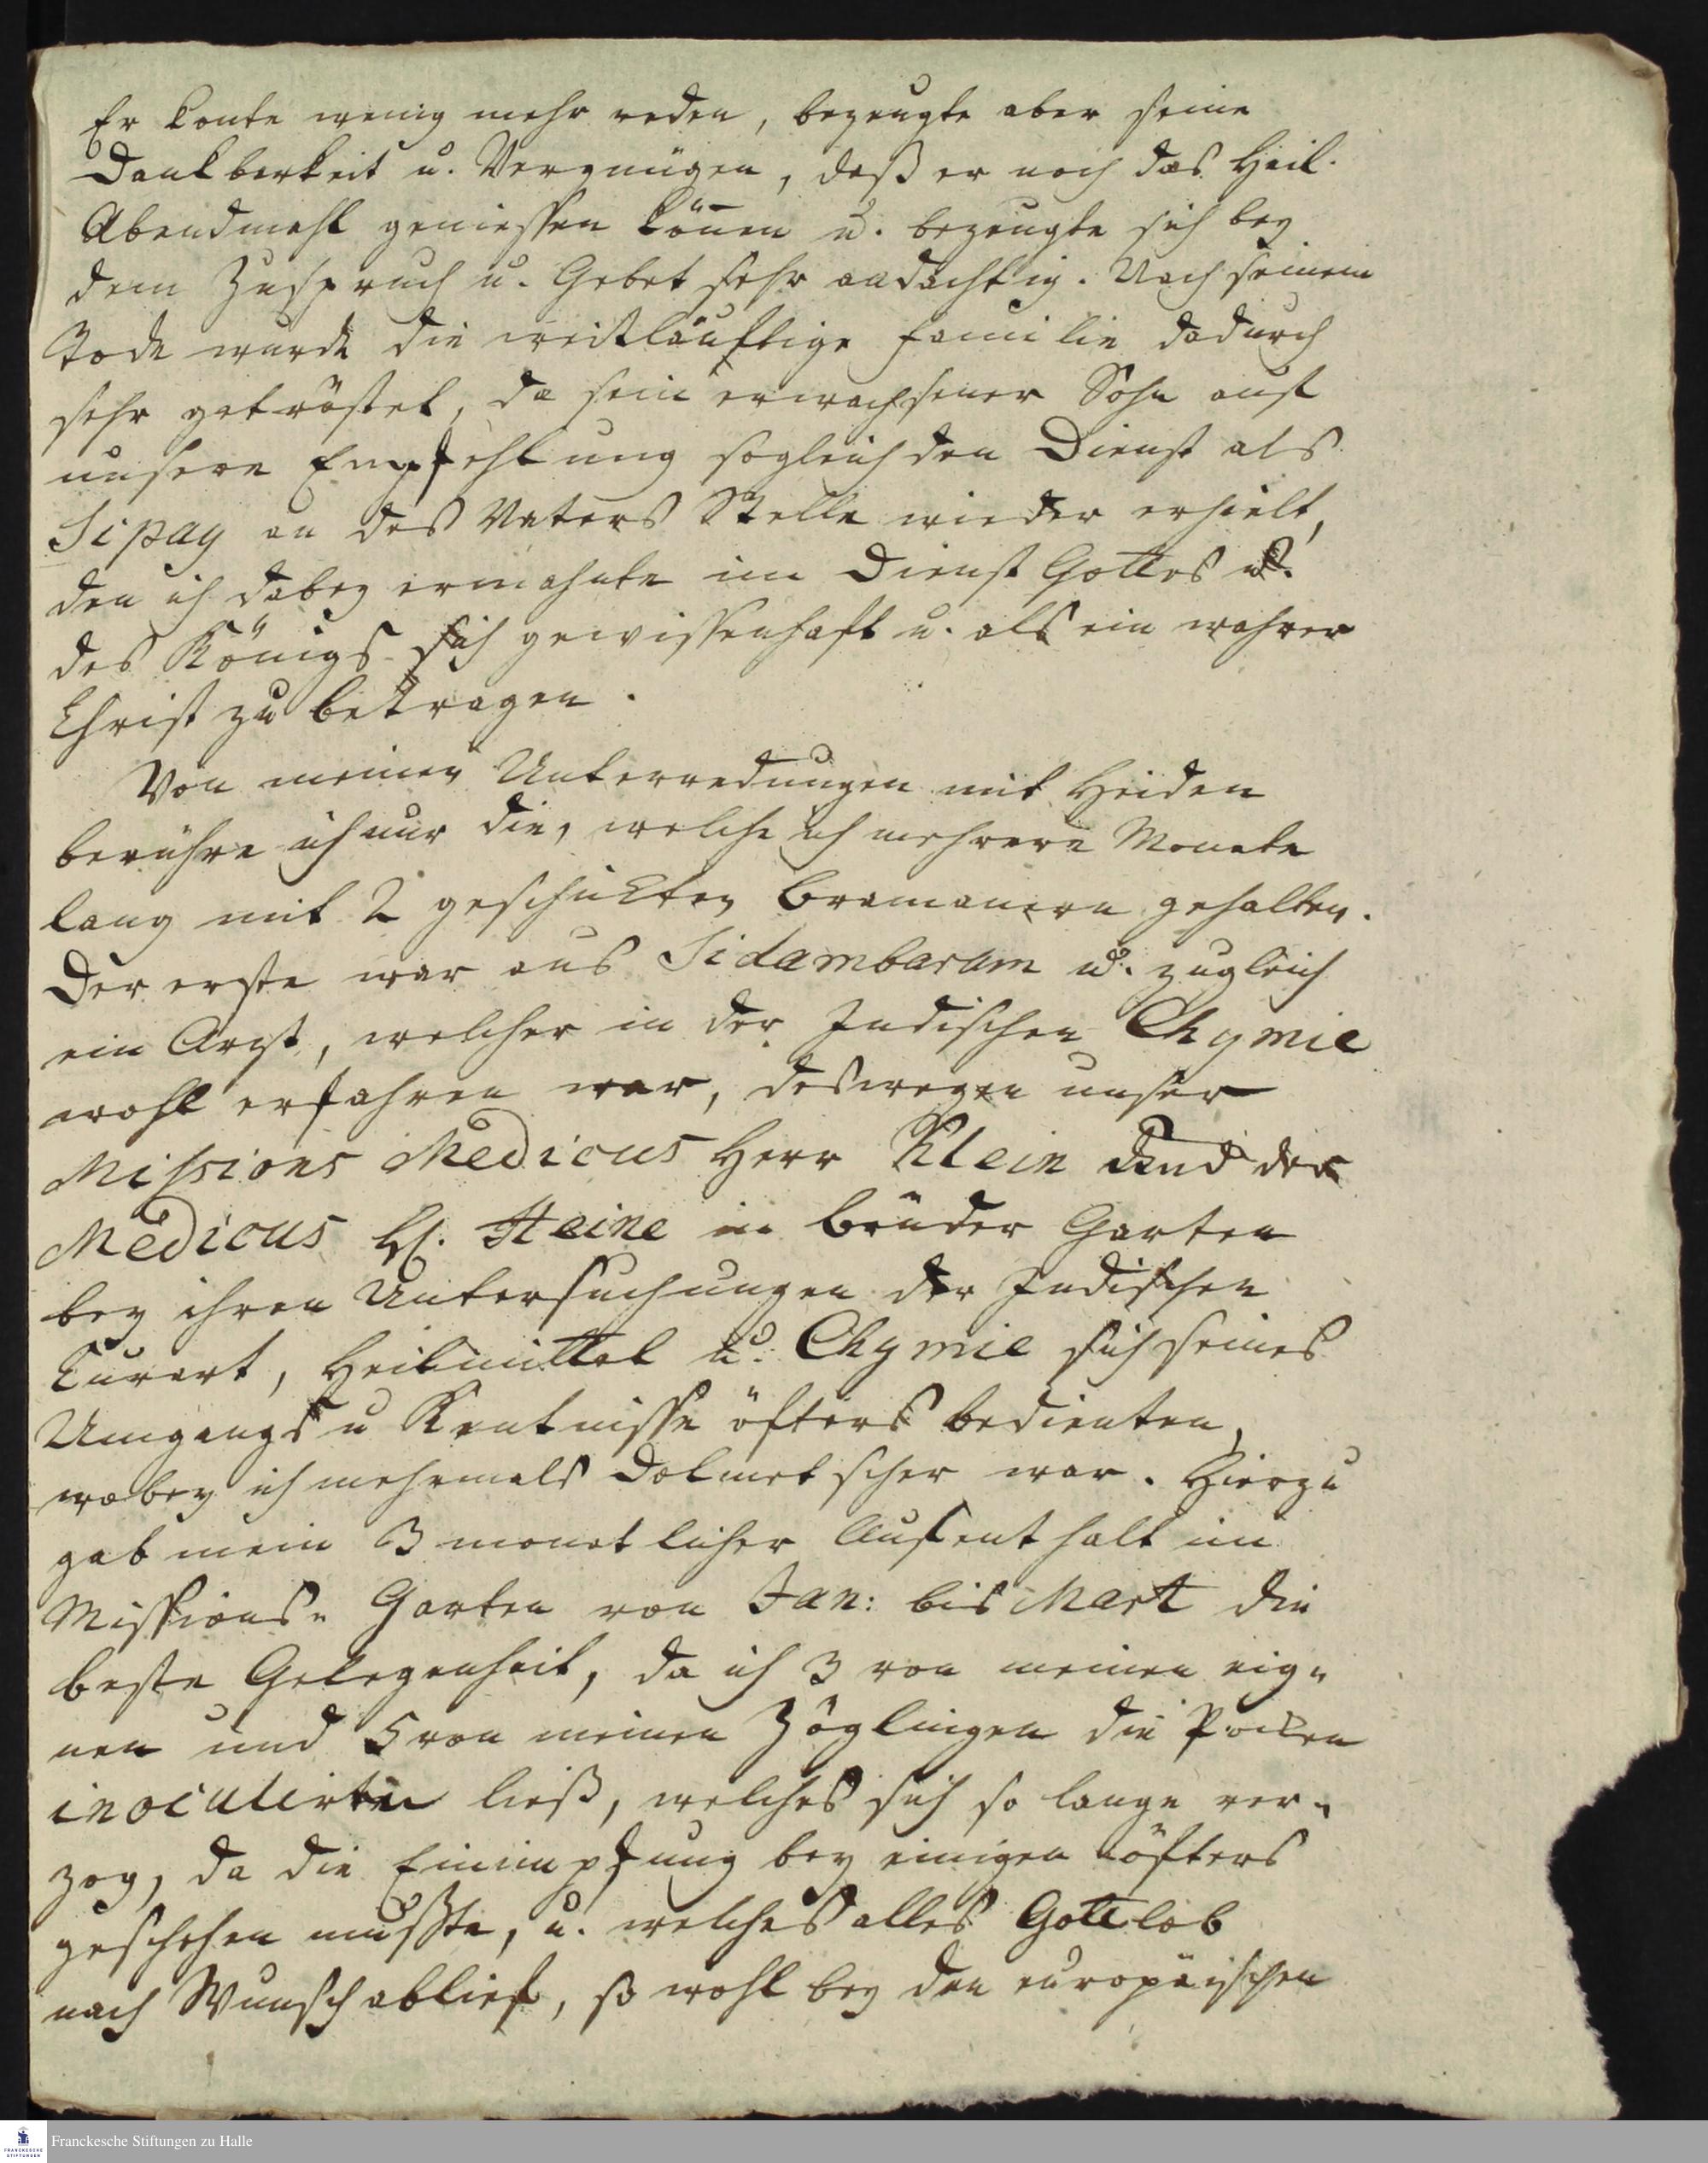 Er konte wenig mehr reden, bezeugte aber seine
Dankbarkeit u. Vergnügen, daß er noch das Heil.
Abendmahl geniessen könen u. bezeugte sich bey
dem Zuspruch u. Gebet sehr andächtig. Nach seinem
Tode wurde die weitläuftige Familie dadurch
sehr getröstet, da sein erwachsener Sohn auf
unsere Empfehlung sogleich den Dienst als
Sipay an des Vaters Stelle wieder erhielt,
den ich dabey ermahnte im Dienst Gottes u.
des Königs sich gewissenhaft u. als ein wahrer
Christ zu betragen.
Von meinen Unterredungen mit Heiden
berühre ich nur die, welche ich mehrere Monate
lang mit 2 geschickten Bramanern gehalten.
Der erste war aus Sidambaram u. zugleich
ein Arzt, welcher in der Indischen Chymie
wohl erfahren war, deswegen unser
Missions Medicus Herr Klein und der
Medicus H. Heine in Brüder Garten
bey ihren Untersuchungen der Indischen
Curart, Heilmittel u. Chymie sich seines
Umgangs u Kentnisse öfters bedienten,
wobey ich mehrmals Dolmetscher war. Hierzu
gab mein 3 monatlicher Aufenthalt im
Missions- Garten von Jan: bis Mart die
beste Gelegenheit, da ich 3 von meinen eig-
nen und 5 von meinen Zöglingen die Pocken
inoculirten ließ, welches sich so lange ver-
zog, da die Einimpfung bey einigen öfters
geschehen mußte, u. welches alles Gottlob
nach Wunsch ablief, so wohl bey den europäischen
Franckesche Stiftungen zu Halle